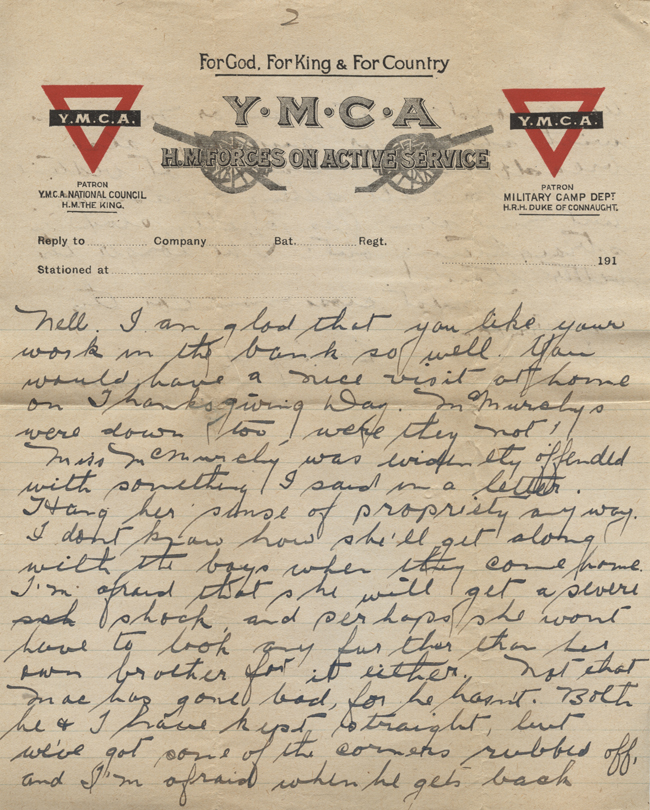 2
For God, For King & For Country
Y·M·C·A
Y.M.C.A.
Y.M.C.A.
H.M. FORCES ON ACTIVE SERVICE
PATRON
Y.M.C.A. NATIONAL COUNCIL
H.M. THE KING.
PATRON
MILITARY CAMP DEPT
H.R.H. DUKE OF CONNAUGHT.
Reply to Company Bat. Regt.
191
Stationed at
Nell. I am glad that you like your
work in the bank so well. You
would have a nice visit at home
on Thanksgiving Day. McMurchys
were down too were they not?
Miss McMurchy was evidently offended
with something I said in a letter.
Hang her sense of propriety anyway.
I dont know how she'll get along
with the boys when they come home.
I'm afraid that she will get a severe
shock and perhaps she wont
have to look any further than her
own brother for it either. Not that
Mac has gone bad, for he hasn't. Both
he & I have kept straight, but
we've got some of the corners rubbed off,
and I'm afraid when he gets back